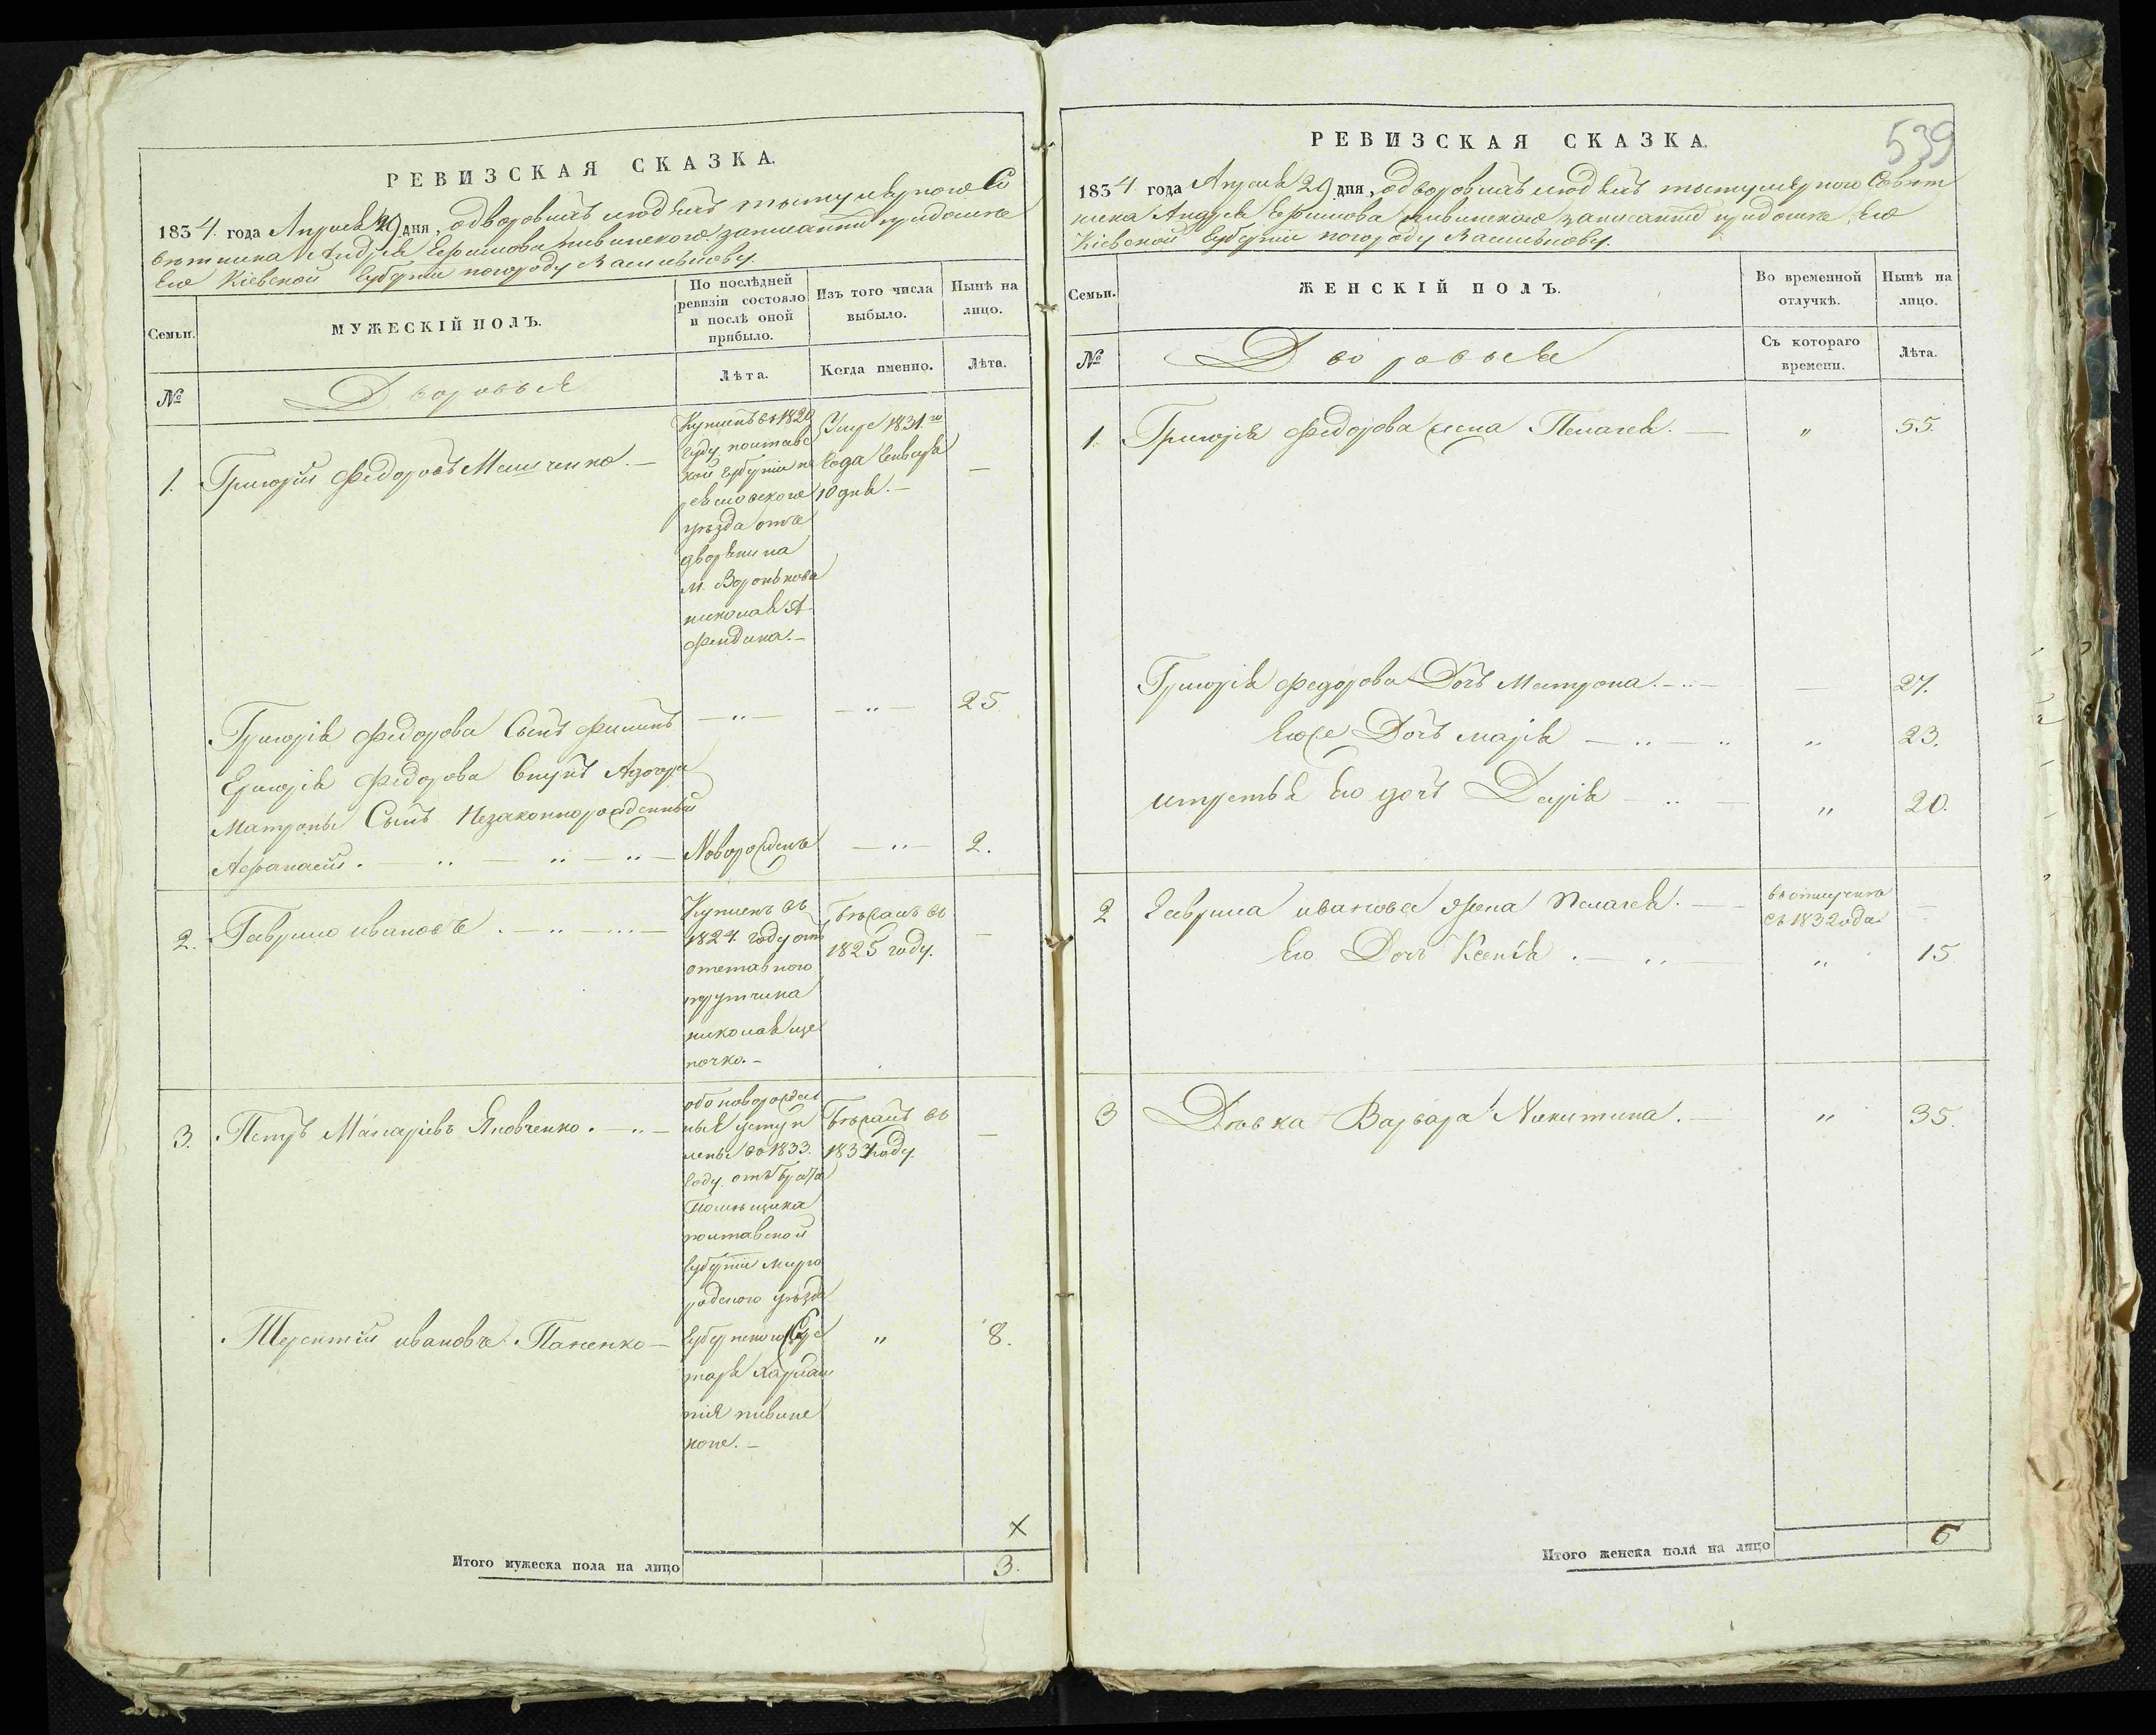 РЕВИЗСКАЯ СКАЗКА.
1834. года Апреля 29 дня, одворовыхъ людяхъ титулярного Со
ветника Андрея Ефимова пивинского. записанныхъ придоме
Его Кіевской Губерніи погороду Василькову.
Семьи.
МУЖЕСКІЙ ПОЛЪ.
По послѣдней
ревизіи состояло
и послѣ оной
прибыло.
Изъ того числа
выбыло.
Нынѣ на
лицо.
№
Дворовыя
Лѣта.
Когда именно.
Лѣта.
1.
Григорий Федоровъ
Купленъ въ 1829
Году полтавс
кой Губерніи
уѣзда отъ
дворянина
М. Воронькова
николая А
Умре 1831.го
Года Генваря
10 дня. —
—
Григорія Федорова Сынъ Филипъ
— „ —
— „ —
25
Григорія Федорова внукъ Адочери
Матроны Сынъ Незаконнорожденный
Афанасій. — „ — „ — „ —
Новорожденъ
— „ —
2.
2.
Гаврило ивановъ . — „ — „ —
Купленъ въ
1824. году отъ
отставного
порутчика
николая
Бѣжалъ въ
1825 году.
—
3.
Петръ Макаріевъ Яковченко. — „ —
обоноворожден
ныя уступ
лены во 1833.
Году. отъ брата
Помѣщика
полтавской
Губерніи мирго
родского уѣзда
Бѣжалъ въ
году.
—
Терентій ивановъ Паненко —
Губернского Секре
таря
пивинс
кого. —
„
8.
Итого мужеска пола на лицо
3.
539
РЕВИЗСКАЯ СКАЗКА.
1834 года Апреля 29 дня, одворовыхъ людяхъ титулярного Совет
ника Андрея Ефимова пивинского записанныхъ придоме Его
Кіевской Губерніи погороду Василькову.
Семьи.
ЖЕНСКІЙ ПОЛЪ.
Во временной
отлучкѣ.
Нынѣ на
лицо.
№
Дворовыя
Съ котораго
времени.
Лѣта.
1.
Григорія Федорова жена Пелагея. —
„
55.
Григорія Федорова Дочъ Матрона. — „ —
—
27.
Егоже Дочъ марія — „ — „
„
23.
итретья Его дочъ Дарія — „ —
„
20.
2
Гаврила иванова жена Пелагея. —
въ отлучке
съ 1832 года
—
Его Дочъ Ксенія . — „ —
„
15
3
Девка Варвара Никитина. —
„
35.
Итого женска пола на лицо
6